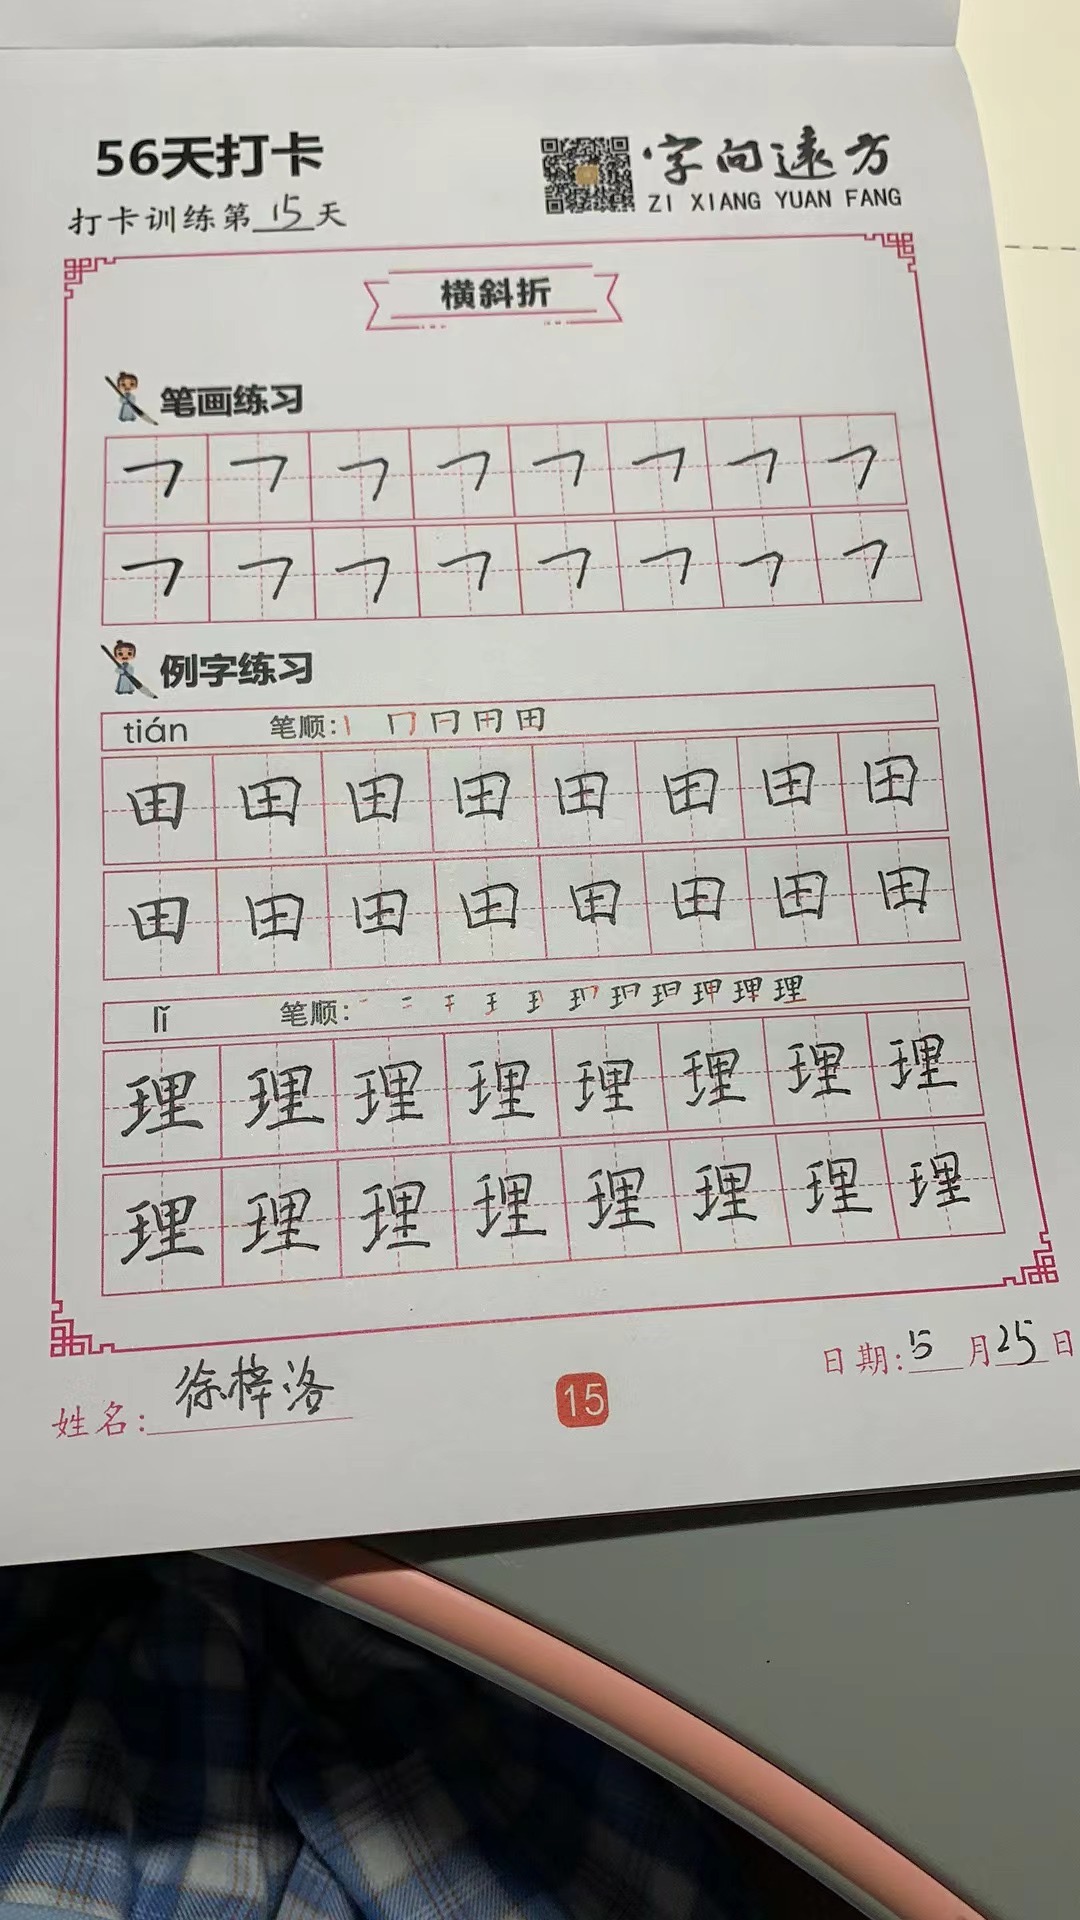 56天打卡
字向远方
ZI XIANG YUAN FANG
打卡训练第15天
横斜折
笔画练习
㇕ ㇕ ㇕ ㇕ ㇕ ㇕ ㇕ ㇕
㇕ ㇕ ㇕ ㇕ ㇕ ㇕ ㇕ ㇕
例字练习
tián 笔顺:丨 冂 日 田 田
田 田 田 田 田 田 田 田
田 田 田 田 田 田 田 田
lǐ 笔顺: 理
理 理 理 理 理 理 理 理
理 理 理 理 理 理 理 理
姓名:徐梓洛
15
日期:5月25日